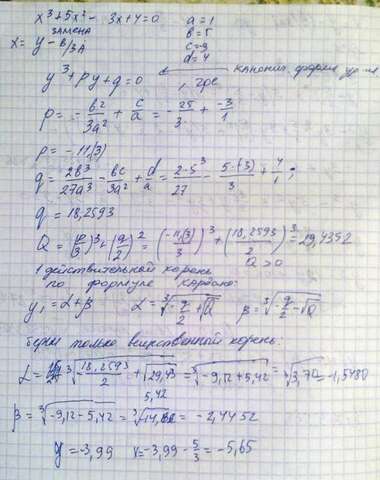 x³ + 5x² - 3x + 4 = 0 a = 1
замена b = 5
x = y - b/3a c = -3
d = 4
y³ + py + q = 0 канонич. форма ур-ия
, где
p = - b²/3a² + c/a = - 25/3 + -3/1
p = -11(3)
q = 2b³/27a³ - bc/3a² + d/a = 2·5³/27 - 5·(-3)/3 + 4/1 =
q = 18,2593
Q = (p/3)³ + (q/2)² = (-11(3)/3)³ + (18,2593/2)² = 29,4352
Q > 0
1 действительный корень
по формуле Кардано:
y₁ = α + β α = ∛(-q/2 + √Q) β = ∛(-q/2 - √Q)
берём только вещественный корень:
α = ∛(18,2593/2 + √29,43) = ∛(-9,12 + 5,42) = ∛3,70 = -1,5480
5,42
β = ∛(-9,12 - 5,42) = ∛ = -2,4452
y = -3,99 x = -3,99 - 5/3 = -5,65